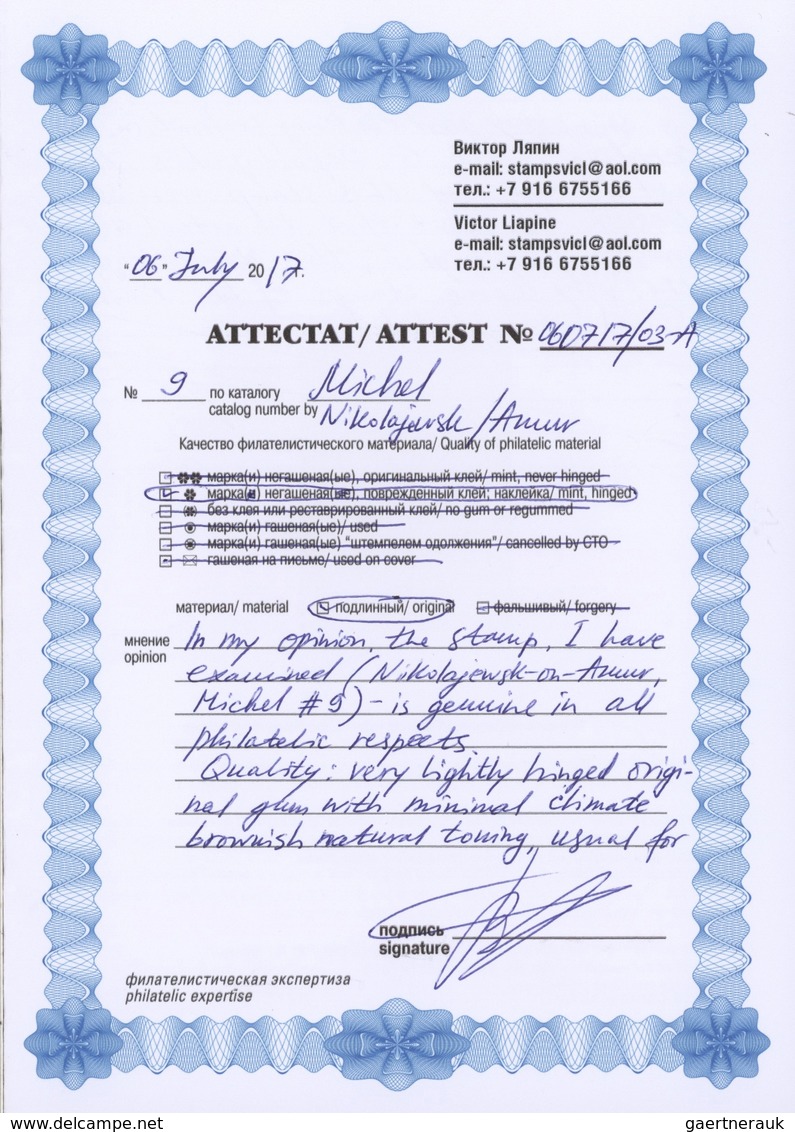 Виктор Ляпин
e-mail: stampsvicl@aol.com
тел.: +7 916 6755166
Victor Liapine
e-mail: stampsvicl@aol.com
тел.: +7 916 6755166
"06" July 2017.
АТТЕСТАТ/ ATTEST № 060717/03-A
№ 9 по каталогу Michel
catalog number by Nikolajewsk/Amur
Качество филателистического материала/ Quality of philatelic material
марка(и) негашеная(ые), оригинальный клей/ mint, never hinged
марка(и) негашеная(ые), поврежденный клей; наклейка/ mint, hinged
без клея или реставрированный клей/ no gum or regummed
марка(и) гашеная(ые)/ used
марка(и) гашеная(ые) "штемпелем одолжения"/ cancelled by CTO
гашеная на письме/ used on cover
материал/ material подлинный/ original фальшивый/ forgery
мнение In my opinion, the stamp, I have
opinion
examined (Nikolajewsk-on-Amur,
Michel #9) - is genuine in all
philatelic respects.
Quality: very lightly hinged origi-
nal gum with minimal climate
brownish natural toning, usual for
подпись
signature
филателистическая экспертиза
philatelic expertise
www.delcampe.net
gaertnerauk